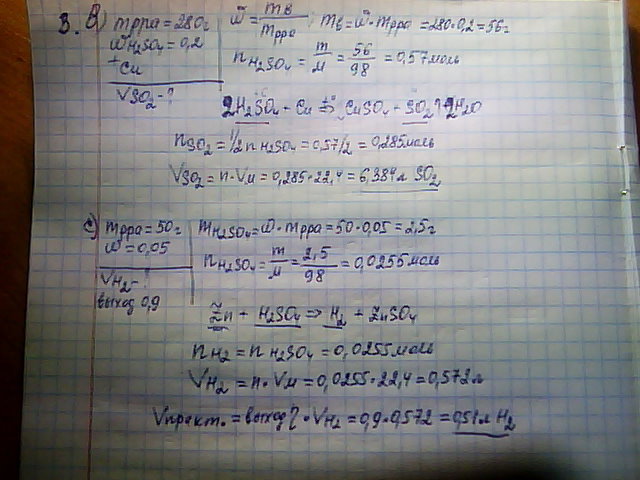 3. В) mрра = 280г
ω H2SO4 = 0,2
+ Cu
VSO2 - ?
ω = mв / mрра ; mв = ω · mрра = 280 · 0,2 = 56г
n H2SO4 = m/M = 56/98 = 0,57 моль
2H2SO4 + Cu => CuSO4 + SO2↑ + 2H2O
nSO2 = 1/2 n H2SO4 = 0,57/2 = 0,285 моль
VSO2 = n · Vм = 0,285 · 22,4 = 6,384 л SO2
С) mрра = 50г
ω = 0,05
VH2 - ?
выход 0,9
mH2SO4 = ω · mрра = 50 · 0,05 = 2,5г
nH2SO4 = m/M = 2,5/98 = 0,0255 моль
Zn + H2SO4 => H2 + ZnSO4
nH2 = n H2SO4 = 0,0255 моль
VH2 = n · Vм = 0,0255 · 22,4 = 0,572 л
Vпракт. = выход η · VH2 = 0,9 · 0,572 = 0,51 л H2